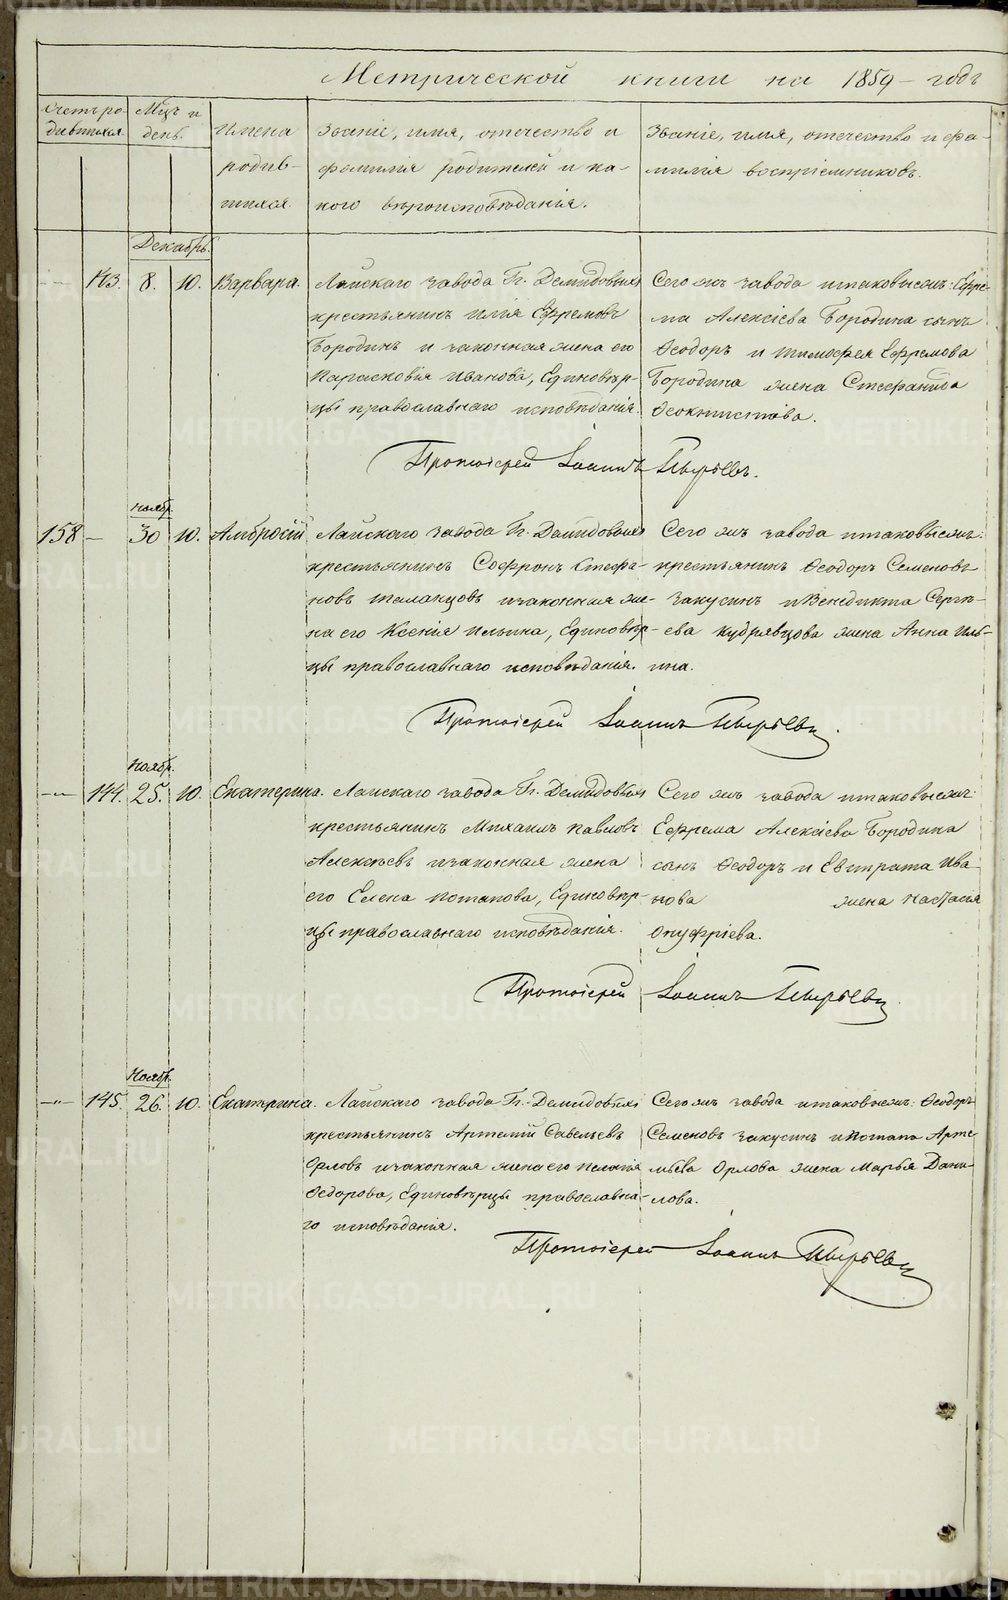 Метрической книги на 1859 годъ
Счетъ ро-
дившихся.
Мцъ и
день.
Имена
родив-
шихся.
Званіе, имя, отечество и
фамилія родителей и ка-
кого вѣроисповѣданія.
Званіе, имя, отечество и фа-
милія воспріемниковъ.
Декабрь.
143. 8. 10. Варвара.
Лайскаго завода Гг. Демидовыхъ
крестьянинъ Илія Ефремовъ
Бородинъ и законная жена его
Парасковія Иванова, Единовѣр-
цы православнаго исповѣданія.
Сего жъ завода и таковыежъ: Ефре-
ма Алексіева Бородина сынъ
Ѳеодоръ и Тимофея Ефремова
Бородина жена Стефанида
Ѳеоктистова.
Протоіерей Іоаннъ Пырьевъ.
Ноябр.
158 — 30 10. Амвросій
Лайскаго завода Гг. Демидовыхъ
крестьянинъ Софронъ Стефа-
новъ и законная же-
на его Ксенія Ильина, Единовѣр-
цы православнаго исповѣданія.
Сего жъ завода и таковыежъ:
крестьянинъ Ѳеодоръ Семеновъ
Закусинъ и Венедикта Серги-
ева Кудрявцова жена Анна Иль-
ина.
Протоіерей Іоаннъ Пырьевъ.
Ноябр.
—"— 144. 25. 10. Екатерина.
Лайскаго завода Гг. Демидовыхъ
крестьянинъ Михаилъ Павловъ
Алексѣевъ и законная жена
его Елена Потапова, Единовѣр-
цы православнаго исповѣданія.
Сего жъ завода и таковыежъ:
Ефрема Алексіева Бородина
сынъ Ѳеодоръ и Евтрата Ива-
нова жена Настасія
Онуфріева.
Протоіерей Іоаннъ Пырьевъ
Ноябр.
—"— 145. 26. 10. Екатерина.
Лайскаго завода Гг. Демидовыхъ
крестьянинъ Артемій Савельевъ
Орловъ и законная жена его Пелагія
Ѳедорова, Единовѣрцы православна-
го исповѣданія.
Сего жъ завода и таковыежъ: Ѳеодоръ
Семеновъ Закусинъ и Потапа Арте-
мьева Орлова жена Марья Дани-
лова.
Протоіерей Іоаннъ Пырьевъ
METRIKI.GASO-URAL.RU